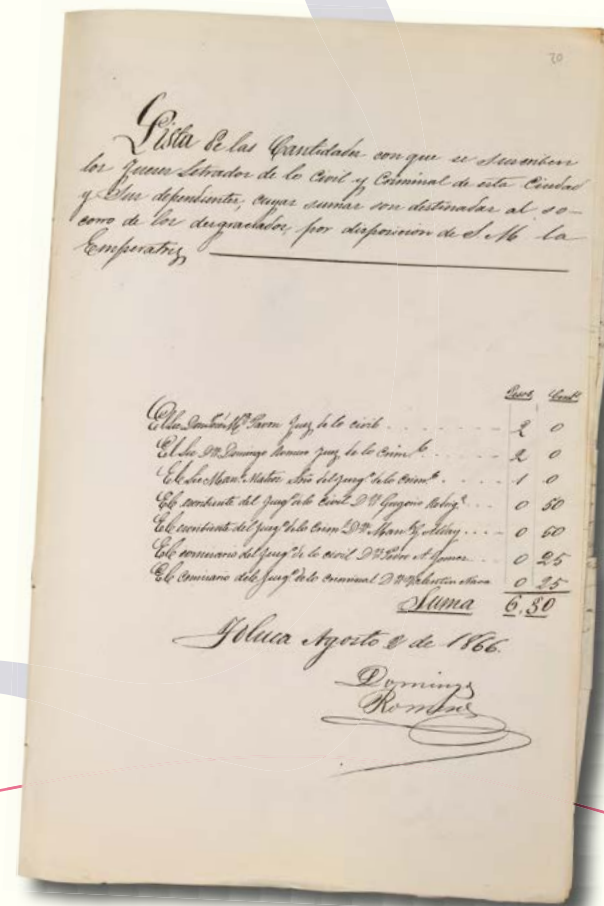 20
Lista de las Cantidades con que se suscriben
los Jueces Letrados de lo Civil y Criminal de esta Ciudad
y Sus dependientes, cuyas sumas son destinadas al so-
corro de los desgraciados, por disposicion de S. M. la
Emperatriz
Pesos Cent.s
El Sor. Don José M.a Pavon Juez de lo civil 2 0
El Sor. Dn. Domingo Romero Juez de lo Crim.l 2 0
El Sor Man.l Mateos Srio del Juzg.o de lo Crim.l 1 0
El escribiente del Juzg.o de lo Civil Dn. Gregorio Rodrig.z 0 50
El escribiente del Juzg.o de lo Crim.l Dn. Man.l 0 50
El comisario del Juzg.o de lo civil Dn. Pedro A. Gomez 0 25
El comisario del Juzg.o de lo criminal Dn. Valentin Nava 0 25
Suma 6.50
Toluca Agosto de 1866.
Domingo
Romero